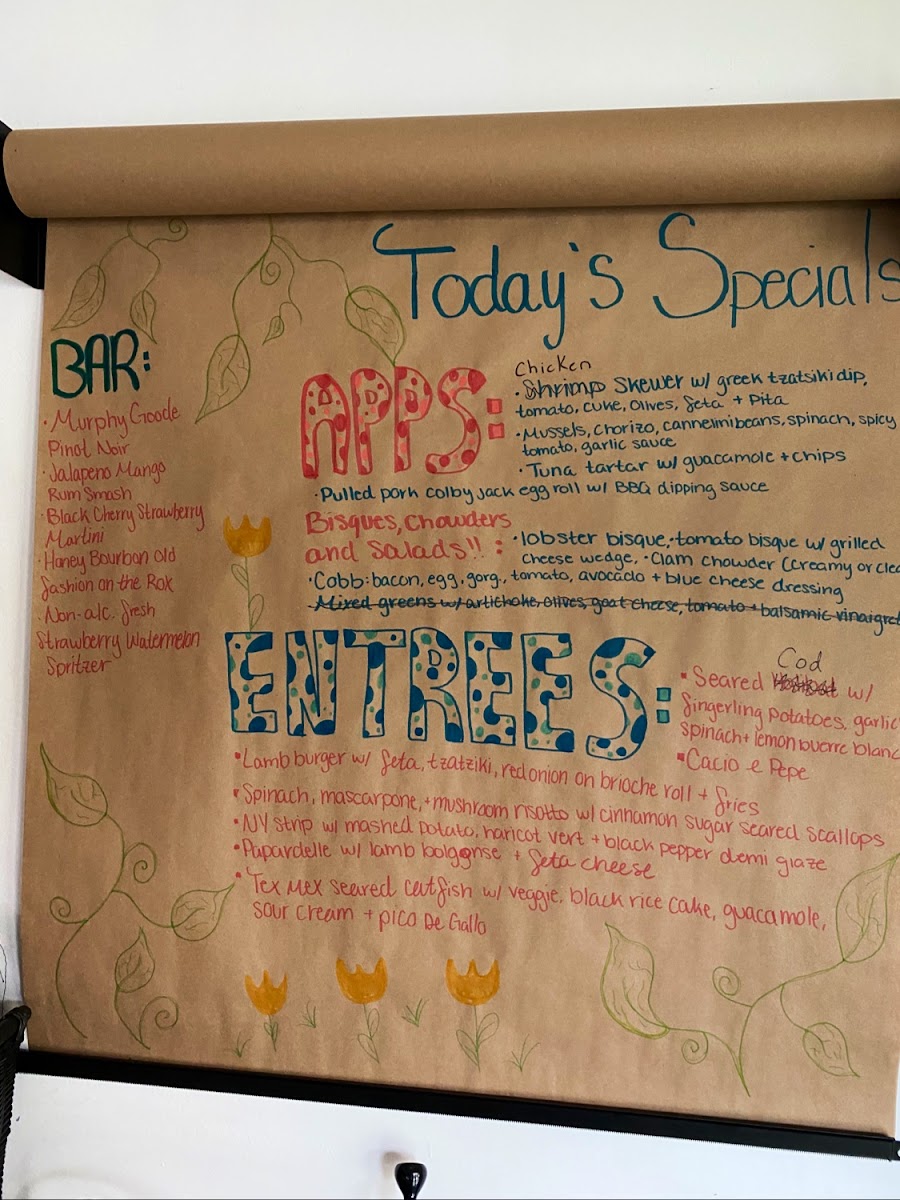 Today's Specials
BAR:
• Murphy Goode
Pinot Noir
• Jalapeno Mango
Rum Smash
• Black Cherry Strawberry
Martini
• Honey Bourbon Old
fashion on the Rok
• Non-alc. fresh
Strawberry Watermelon
Spritzer
APPS:
Chicken
• Shrimp Skewer w/ greek tzatsiki dip,
tomato, cuke, Olives, feta + Pita
• Mussels, chorizo, cannelmi beans, spinach, spicy
tomato, garlic sauce
• Tuna tartar w/ guacamole + chips
• Pulled pork colby jack egg roll w/ BBQ dipping sauce
Bisques, chowders
and Salads!! :
• lobster bisque, • tomato bisque w/ grilled
cheese wedge, • Clam chowder (creamy or clea
• Cobb: bacon, egg, gorg., tomato, avocado + blue cheese dressing
• Mixed greens w/ artichoke, olives, goat cheese, tomato + balsamic vinaigret
ENTREES:
Cod
• Seared w/
fingerling potatoes, garlic
spinach + lemon buerre blanc
• Cacio e Pepe
• Lamb burger w/ feta, tzatziki, red onion on brioche roll + fries
• Spinach, mascarpone, + mushroom risotto w/ cinnamon sugar seared scallops
• NY strip w/ mashed potato, haricot vert + black pepper demi glaze
• Papardelle w/ lamb bolognse + feta cheese
• Tex Mex seared catfish w/ veggie, black rice cake, guacamole,
sour cream + pico De Gallo